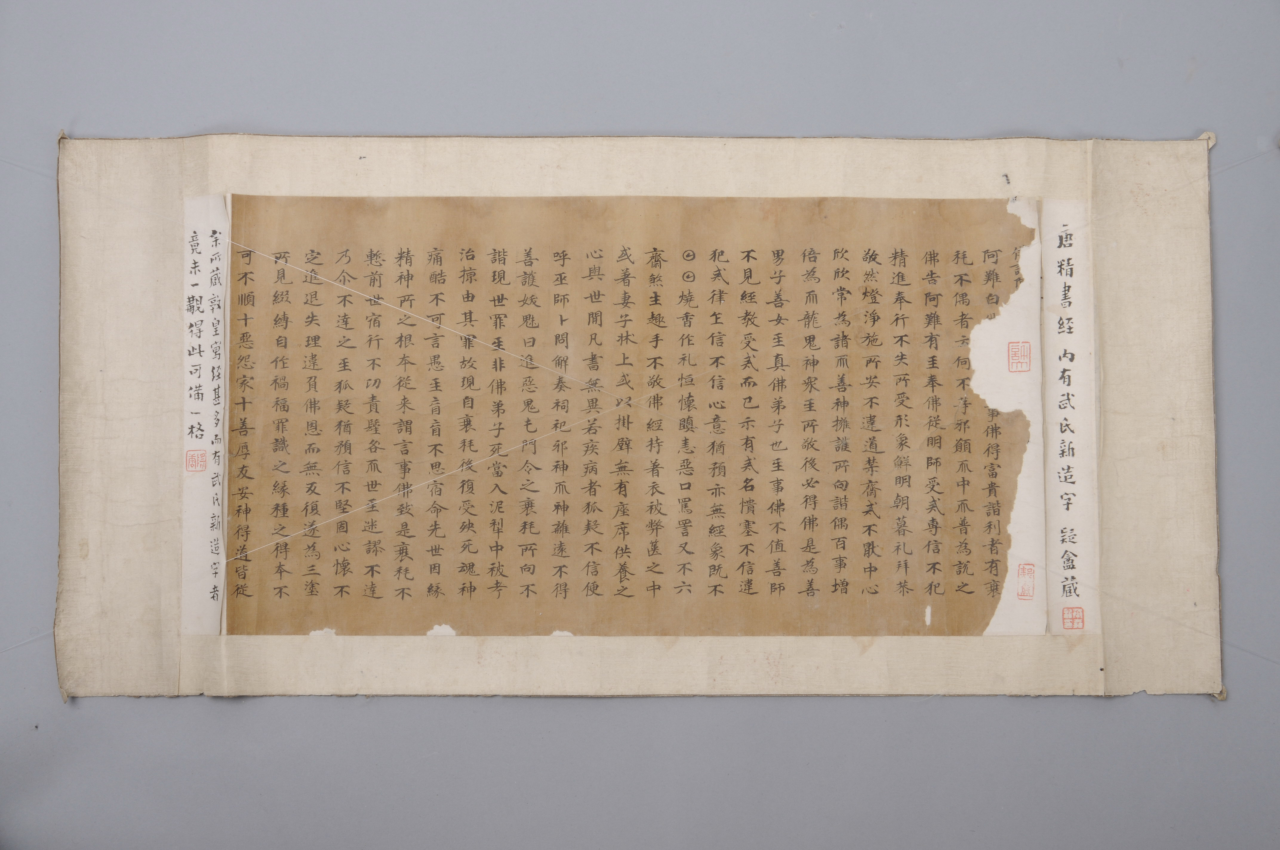 唐精書經 內有武氏新造字 疑盦藏
阿難白 事佛得富貴諧利者有衰
耗不偶者云何不等耶願𠀑中𠀑普為說之
佛告阿難有𤯔奉佛從明師受戒專信不犯
精進奉行不失所受形象鮮明朝暮礼拜恭
敬然燈淨施所安不違道禁齋戒不猒中心
欣欣常為諸𠀑善神擁護所向諧偶百事增
倍為𠀑龍鬼神衆𤯔所敬後必得佛是為善
男子善女𤯔真佛弟子也𤯔事佛不值善師
不見經教受戒而已示有戒名憒塞不信違
犯戒律乍信不信心意猶預亦無經象既不
𡆠𡆠燒香作礼恒懷瞋恚惡口罵詈又不六
齋煞生趣手不敬佛經持著衣被弊篋之中
或著妻子床上或以掛壁無有座席供養之
心與世間凡書無異若疾病者狐疑不信便
呼巫師卜問解奏祠祀邪神𠀑神離遠不得
善護妖魅日進惡鬼屯門令之衰耗所向不
諧現世罪𤯔非佛弟子死當入泥犁中被考
治掠由其罪故現自衰耗後復受殃死魂神
痛酷不可言愚𤯔盲盲不思宿命先世因緣
精神所之根本從來謂言事佛致是衰耗不
慙前世宿行不功責聲各𠀑世𤯔迷謬不達
乃尒不達之𤯔狐疑猶預信不堅固心懷不
定進退失理違負佛恩而無反復遂為三塗
所見綴縛自作禍福罪識之緣種之得本不
可不順十惡怨家十善厚友安神得道皆從
余所藏敦皇寫經甚多而有武氏新造字者
竟未一覯得此可備一格